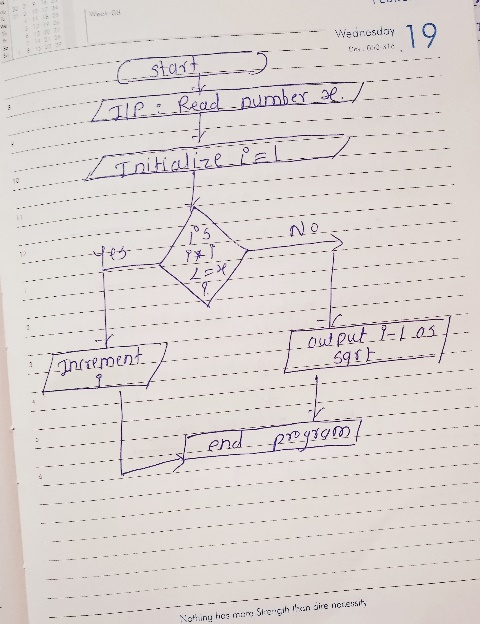 Wednesday 19
start
I/P : Read number x.
Initialize i = 1
is
i*i
<=x
?
Yes
No
Increment
i
output i-1 as
sqrt
end program
Nothing has more Strength than dire necessity